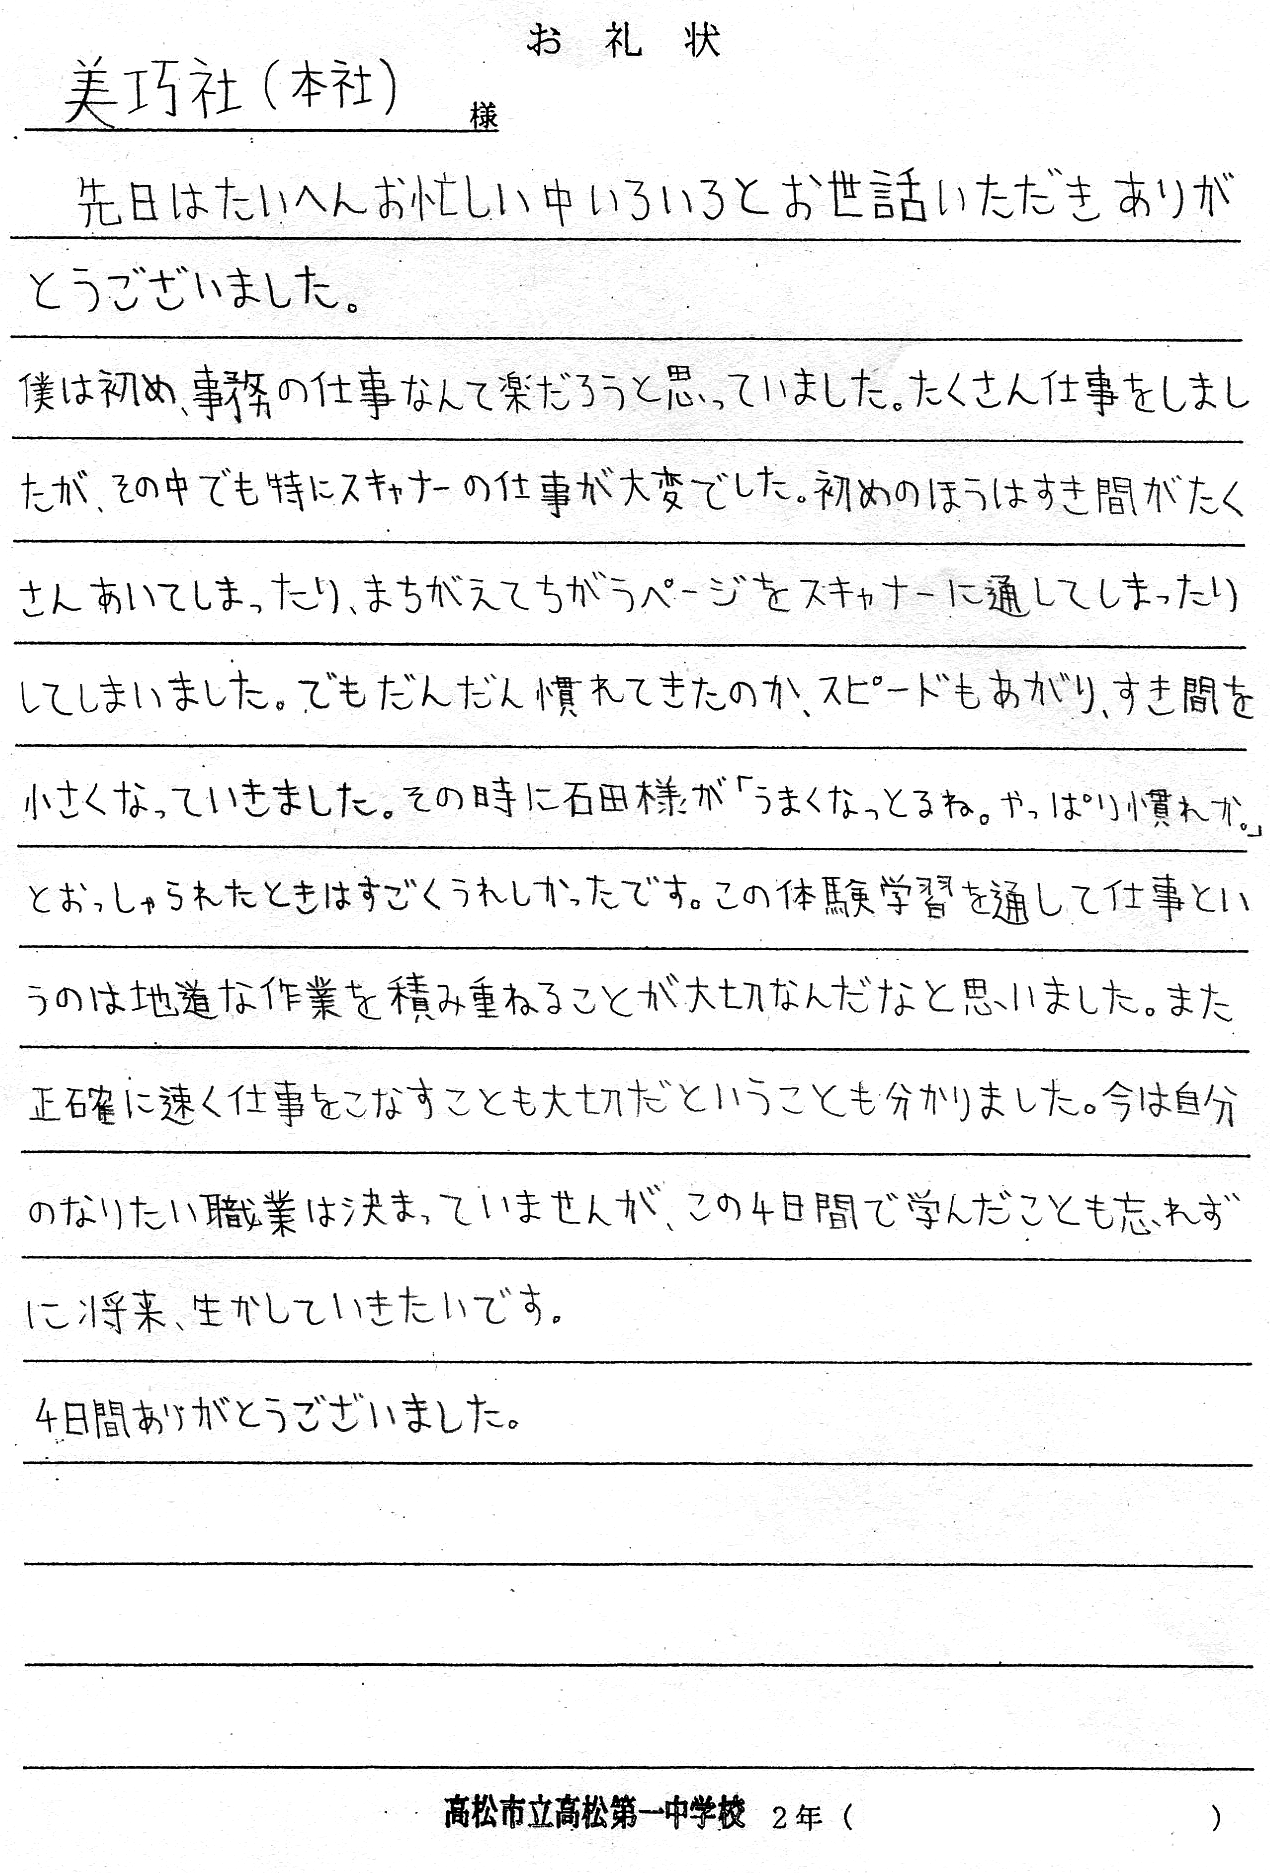 お礼状
美巧社(本社) 様
先日はたいへんお忙しい中いろいろとお世話いただきありが
とうございました。
僕は初め、事務の仕事なんて楽だろうと思っていました。たくさん仕事をしまし
たが、その中でも特にスキャナーの仕事が大変でした。初めのほうはすき間がたく
さんあいてしまったり、まちがえてちがうページをスキャナーに通してしまったり
してしまいました。でもだんだん慣れてきたのか、スピードもあがり、すき間を
小さくなっていきました。その時に石田様が「うまくなっとるね。やっぱり慣れか。」
とおっしゃられたときはすごくうれしかったです。この体験学習を通して仕事とい
うのは地道な作業を積み重ねることが大切なんだなと思いました。また
正確に速く仕事をこなすことも大切だということも分かりました。今は自分
のなりたい職業は決まっていませんが、この4日間で学んだことも忘れず
に将来、生かしていきたいです。
4日間ありがとうございました。
高松市立高松第一中学校 2年( )